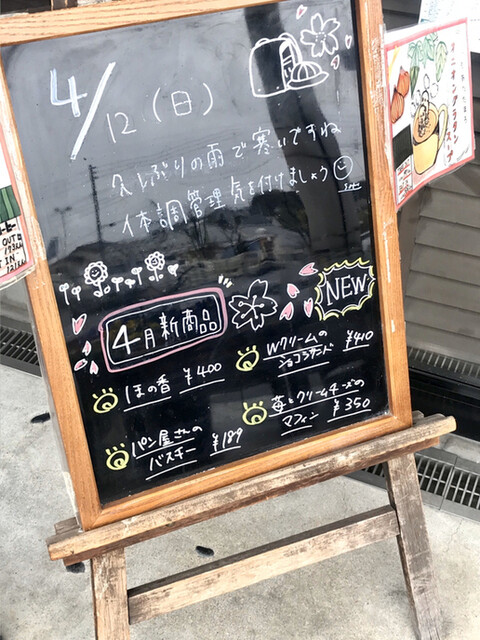 4/12(日)
久しぶりの雨で寒いですね
体調管理気を付けましょう
4月新商品
NEW
ほの香 ¥400
Wクリームの
ショコラサンド ¥410
パン屋さんの
バスチー ¥189
苺とクリームチーズの
マフィン ¥350
オニオングラタン
スープ
OUT
IN